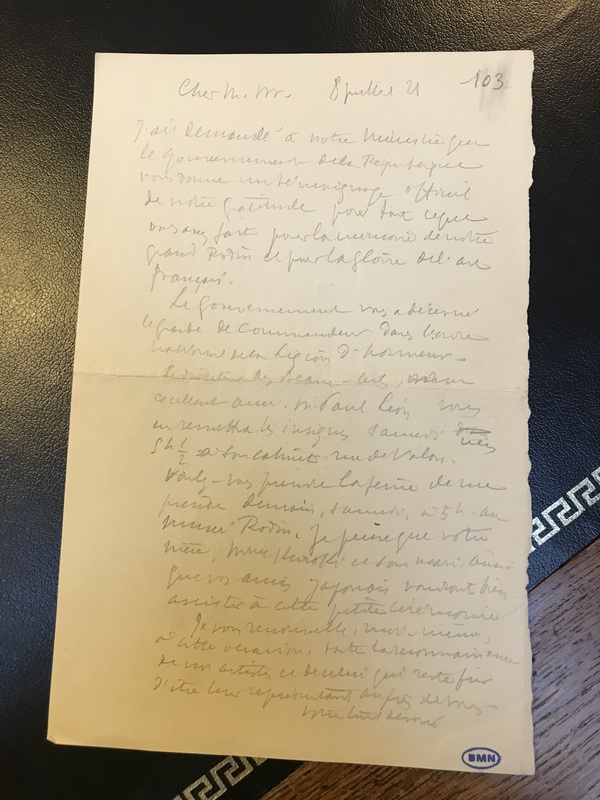 Cher M. M. 8 juillet 21 103
J'ai demandé à notre Ministre que
le Gouvernement de la République
vous donne un témoignage officiel
de notre gratitude pour tout ce que
vous avez fait pour la mémoire de notre
grand Rodin et pour la gloire de l'art
français.
Le Gouvernement vous a décerné
le grade de Commandeur dans l'ordre
national de la Légion d'honneur.
Le directeur des Beaux-arts, mon
excellent ami, M. Paul Léon vous
en remettra les insignes samedi vers
5h 1/2 à son cabinet rue de Valois.
Voulez-vous prendre la peine de me
prendre demain, samedi, à 5h au
Musée Rodin. Je pense que votre
nièce, Mme Kuroki et son mari, ainsi
que vos amis japonais voudront bien
assister à cette petite cérémonie
Je vous renouvelle, moi-même,
à cette occasion, toute la reconnaissance
de nos artistes et de celui qui reste fier
d'être leur représentant auprès de vous.
Votre tout dévoué
BMN